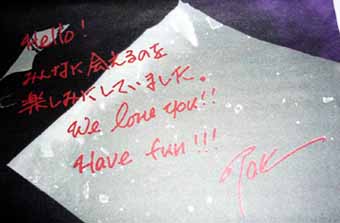 Hello!
みんなに会えるのを
楽しみにしていました。
We love you!!
Have fun!!!
Tak